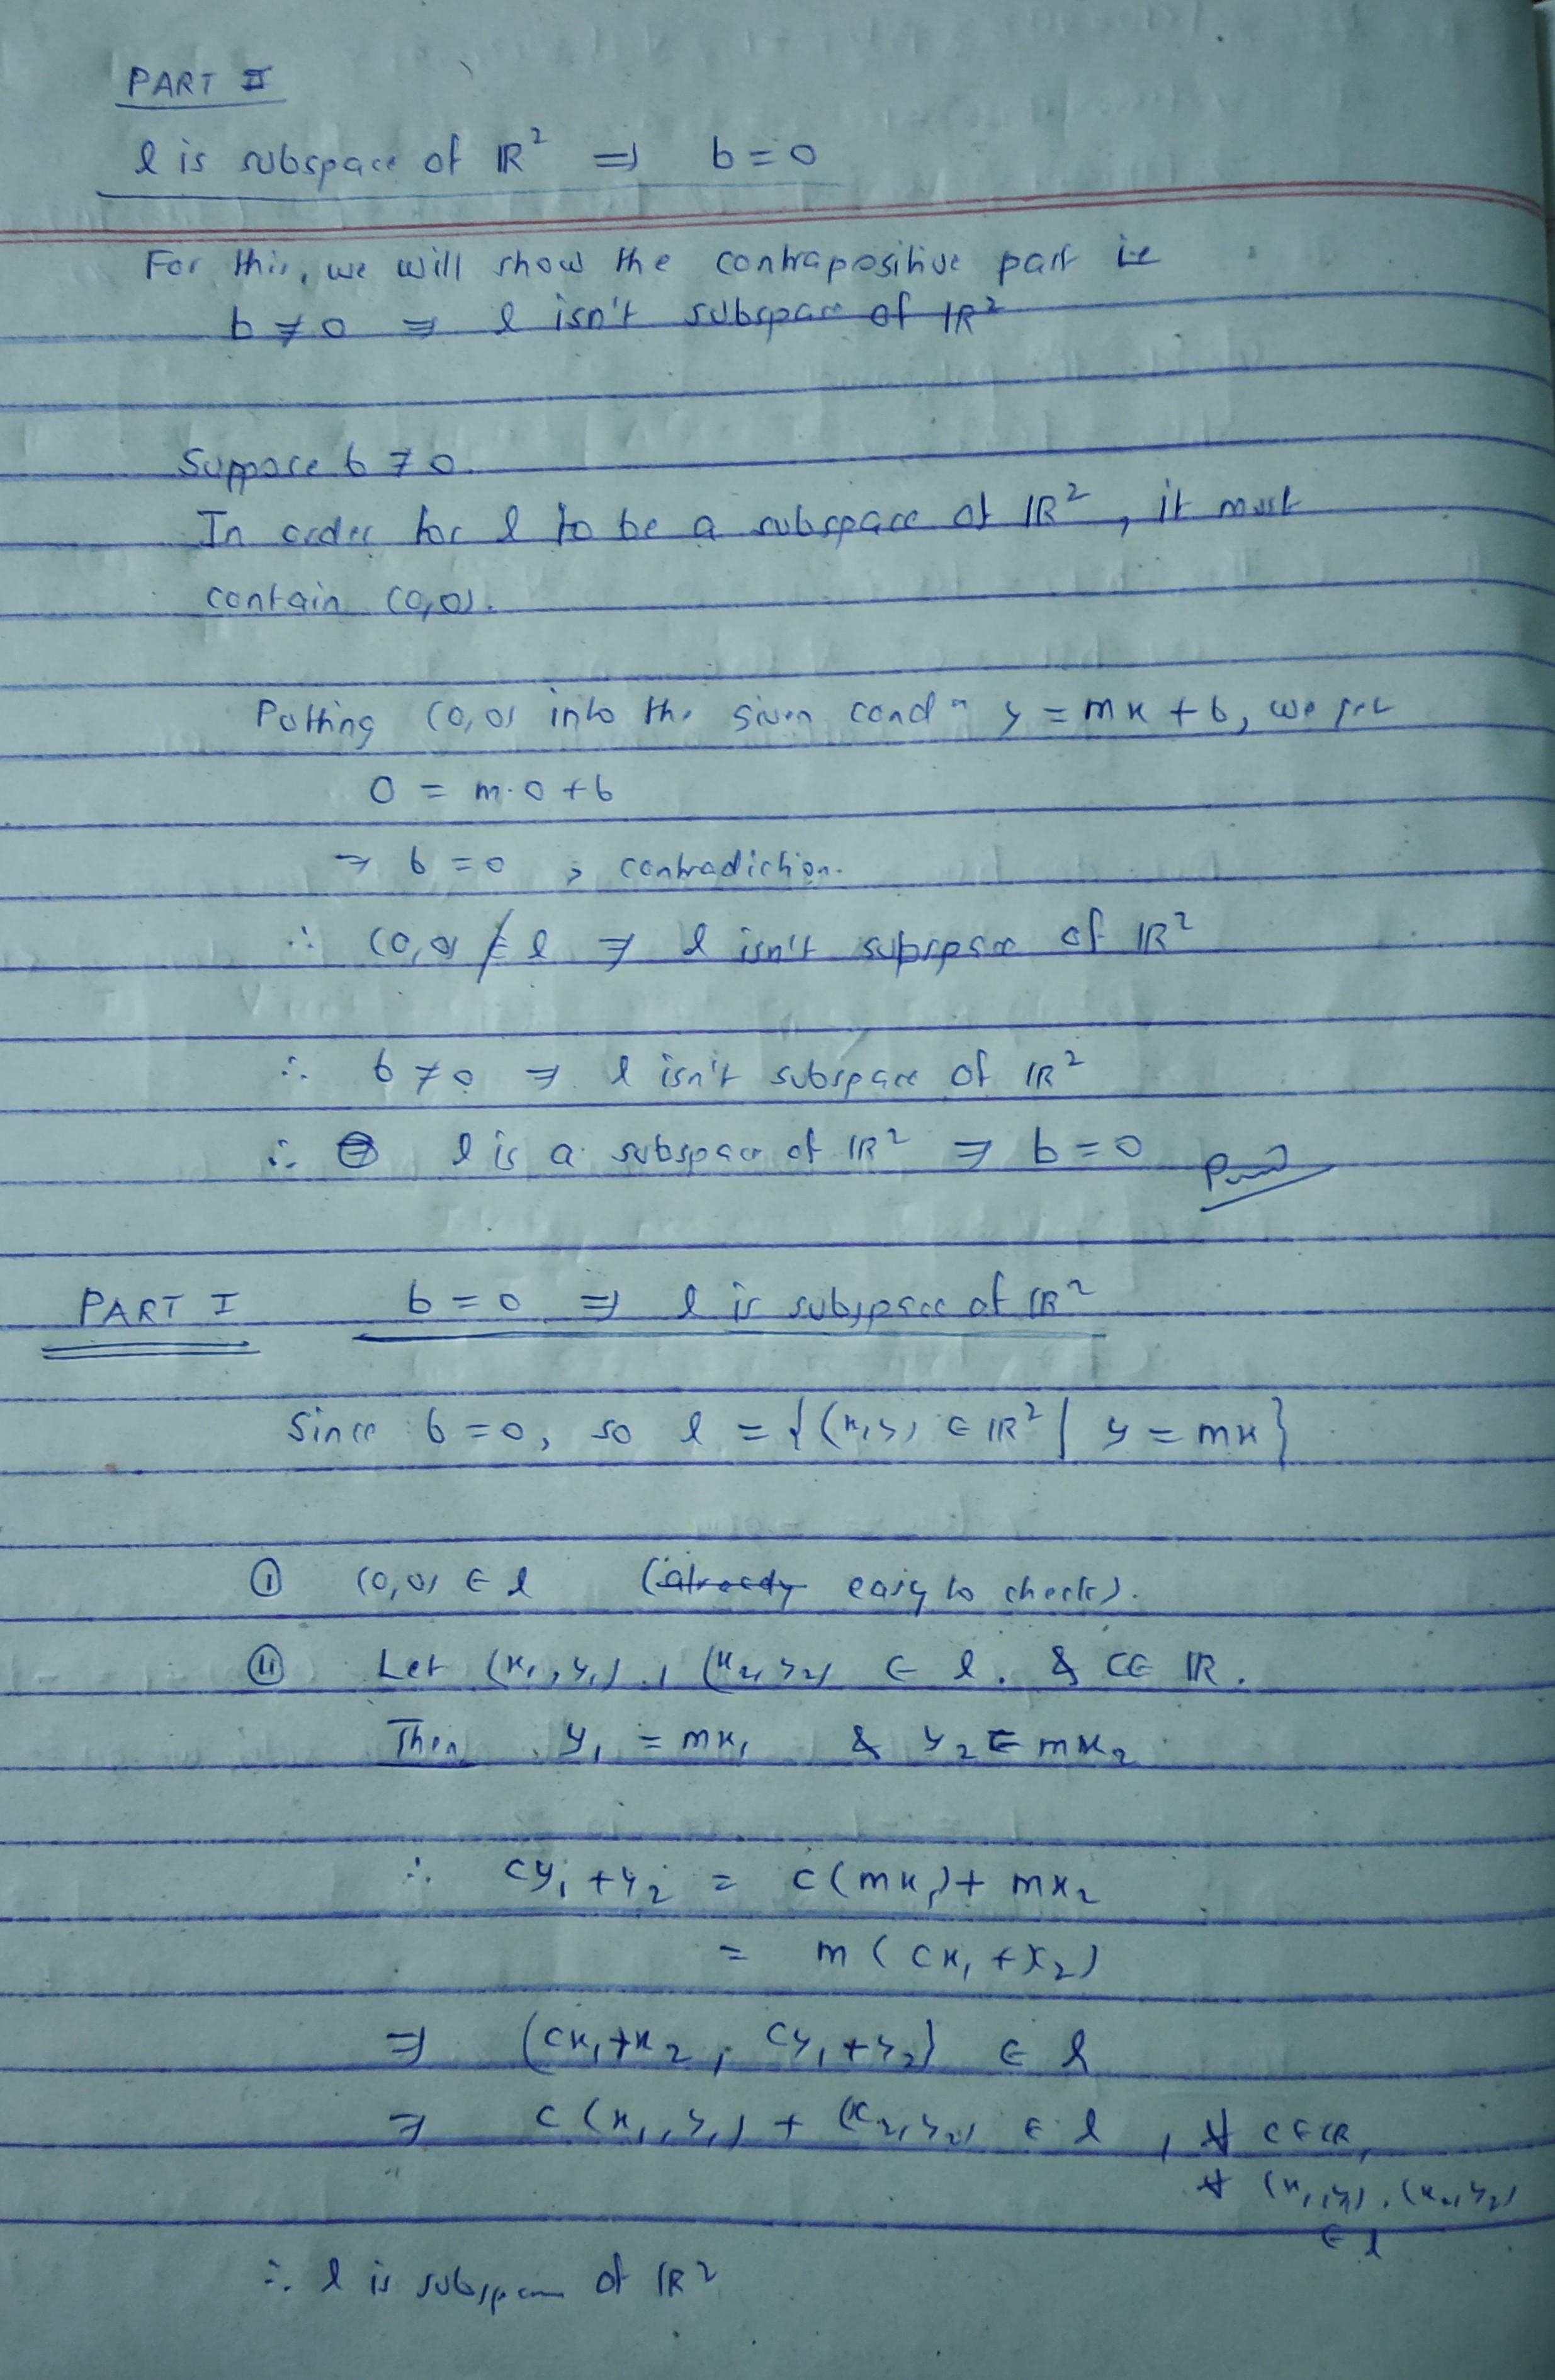 PART II
l is subspace of ℝ² ⇒ b = 0
For this, we will show the contrapositive part ie
b ≠ 0 ⇒ l isn't subspace of ℝ²
Suppose b ≠ 0.
In order for l to be a subspace of ℝ², it must
contain (0,0).
Putting (0,0) into the given condⁿ y = mx + b, we get
0 = m·0 + b
⇒ b = 0, contradiction.
∴ (0,0) ∉ l ⇒ l isn't subspace of ℝ²
∴ b ≠ 0 ⇒ l isn't subspace of ℝ²
∴ l is a subspace of ℝ² ⇒ b = 0
PART I b = 0 ⇒ l is subspace of ℝ²
Since b = 0, so l = {(x,y) ∈ ℝ² | y = mx}
(i) (0,0) ∈ l (already easy to check).
(ii) Let (x₁,y₁), (x₂,y₂) ∈ l. & c ∈ ℝ.
Then y₁ = mx₁ & y₂ = mx₂
∴ cy₁ + y₂ = c(mx₁) + mx₂
= m(cx₁ + x₂)
⇒ (cx₁+x₂, cy₁+y₂) ∈ l
⇒ c(x₁,y₁) + (x₂,y₂) ∈ l, ∀ c ∈ ℝ,
∀ (x₁,y₁), (x₂,y₂)
∈ l
∴ l is subspace of ℝ²